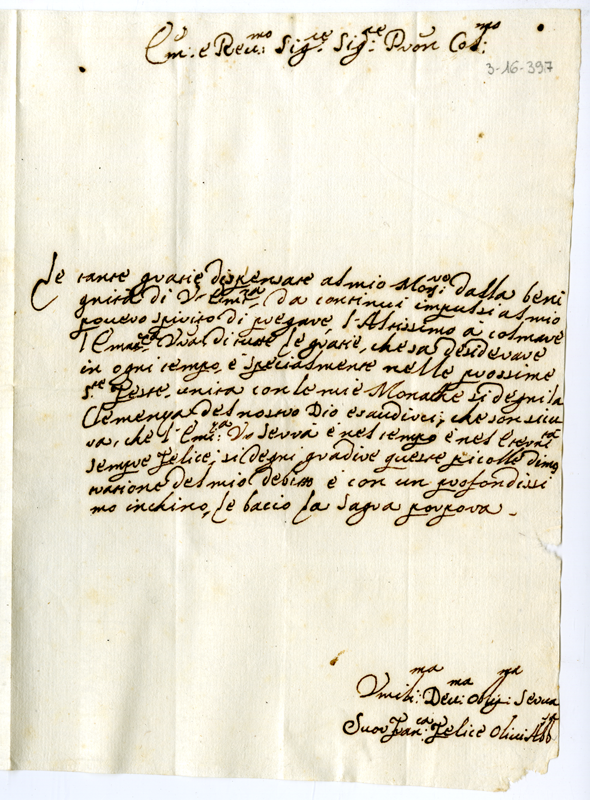 Em: e Reu:mo Sig:re Sig:re Pron Col:mo
3-16-397
Le tante gratie dispensate al mio Mon:ro dalla beni
gnità di V: Em:za da continui impulsi al mio
povero spirito di pregare l'Altissimo a colmare
l'Emza Vra di tutte le gratie, che sa desiderare
in ogni tempo, e specialmente nelle prossime
S:te Feste, unita con le mie Monache si degni la
Clemenza del nostro Dio esaudirci; che son sicu
ra, che l'Em:za V: serrà e nel tempo e nel Eternità
sempre felice, si degni gradire queste picolle dimo
stratione del mio debito e con un profondissi
mo inchino, le baccio la Sagra porpora.
Vmili:ma Deu:ma Oblig:ma Serua
Suor Fran:ca Felice Oliui Abb